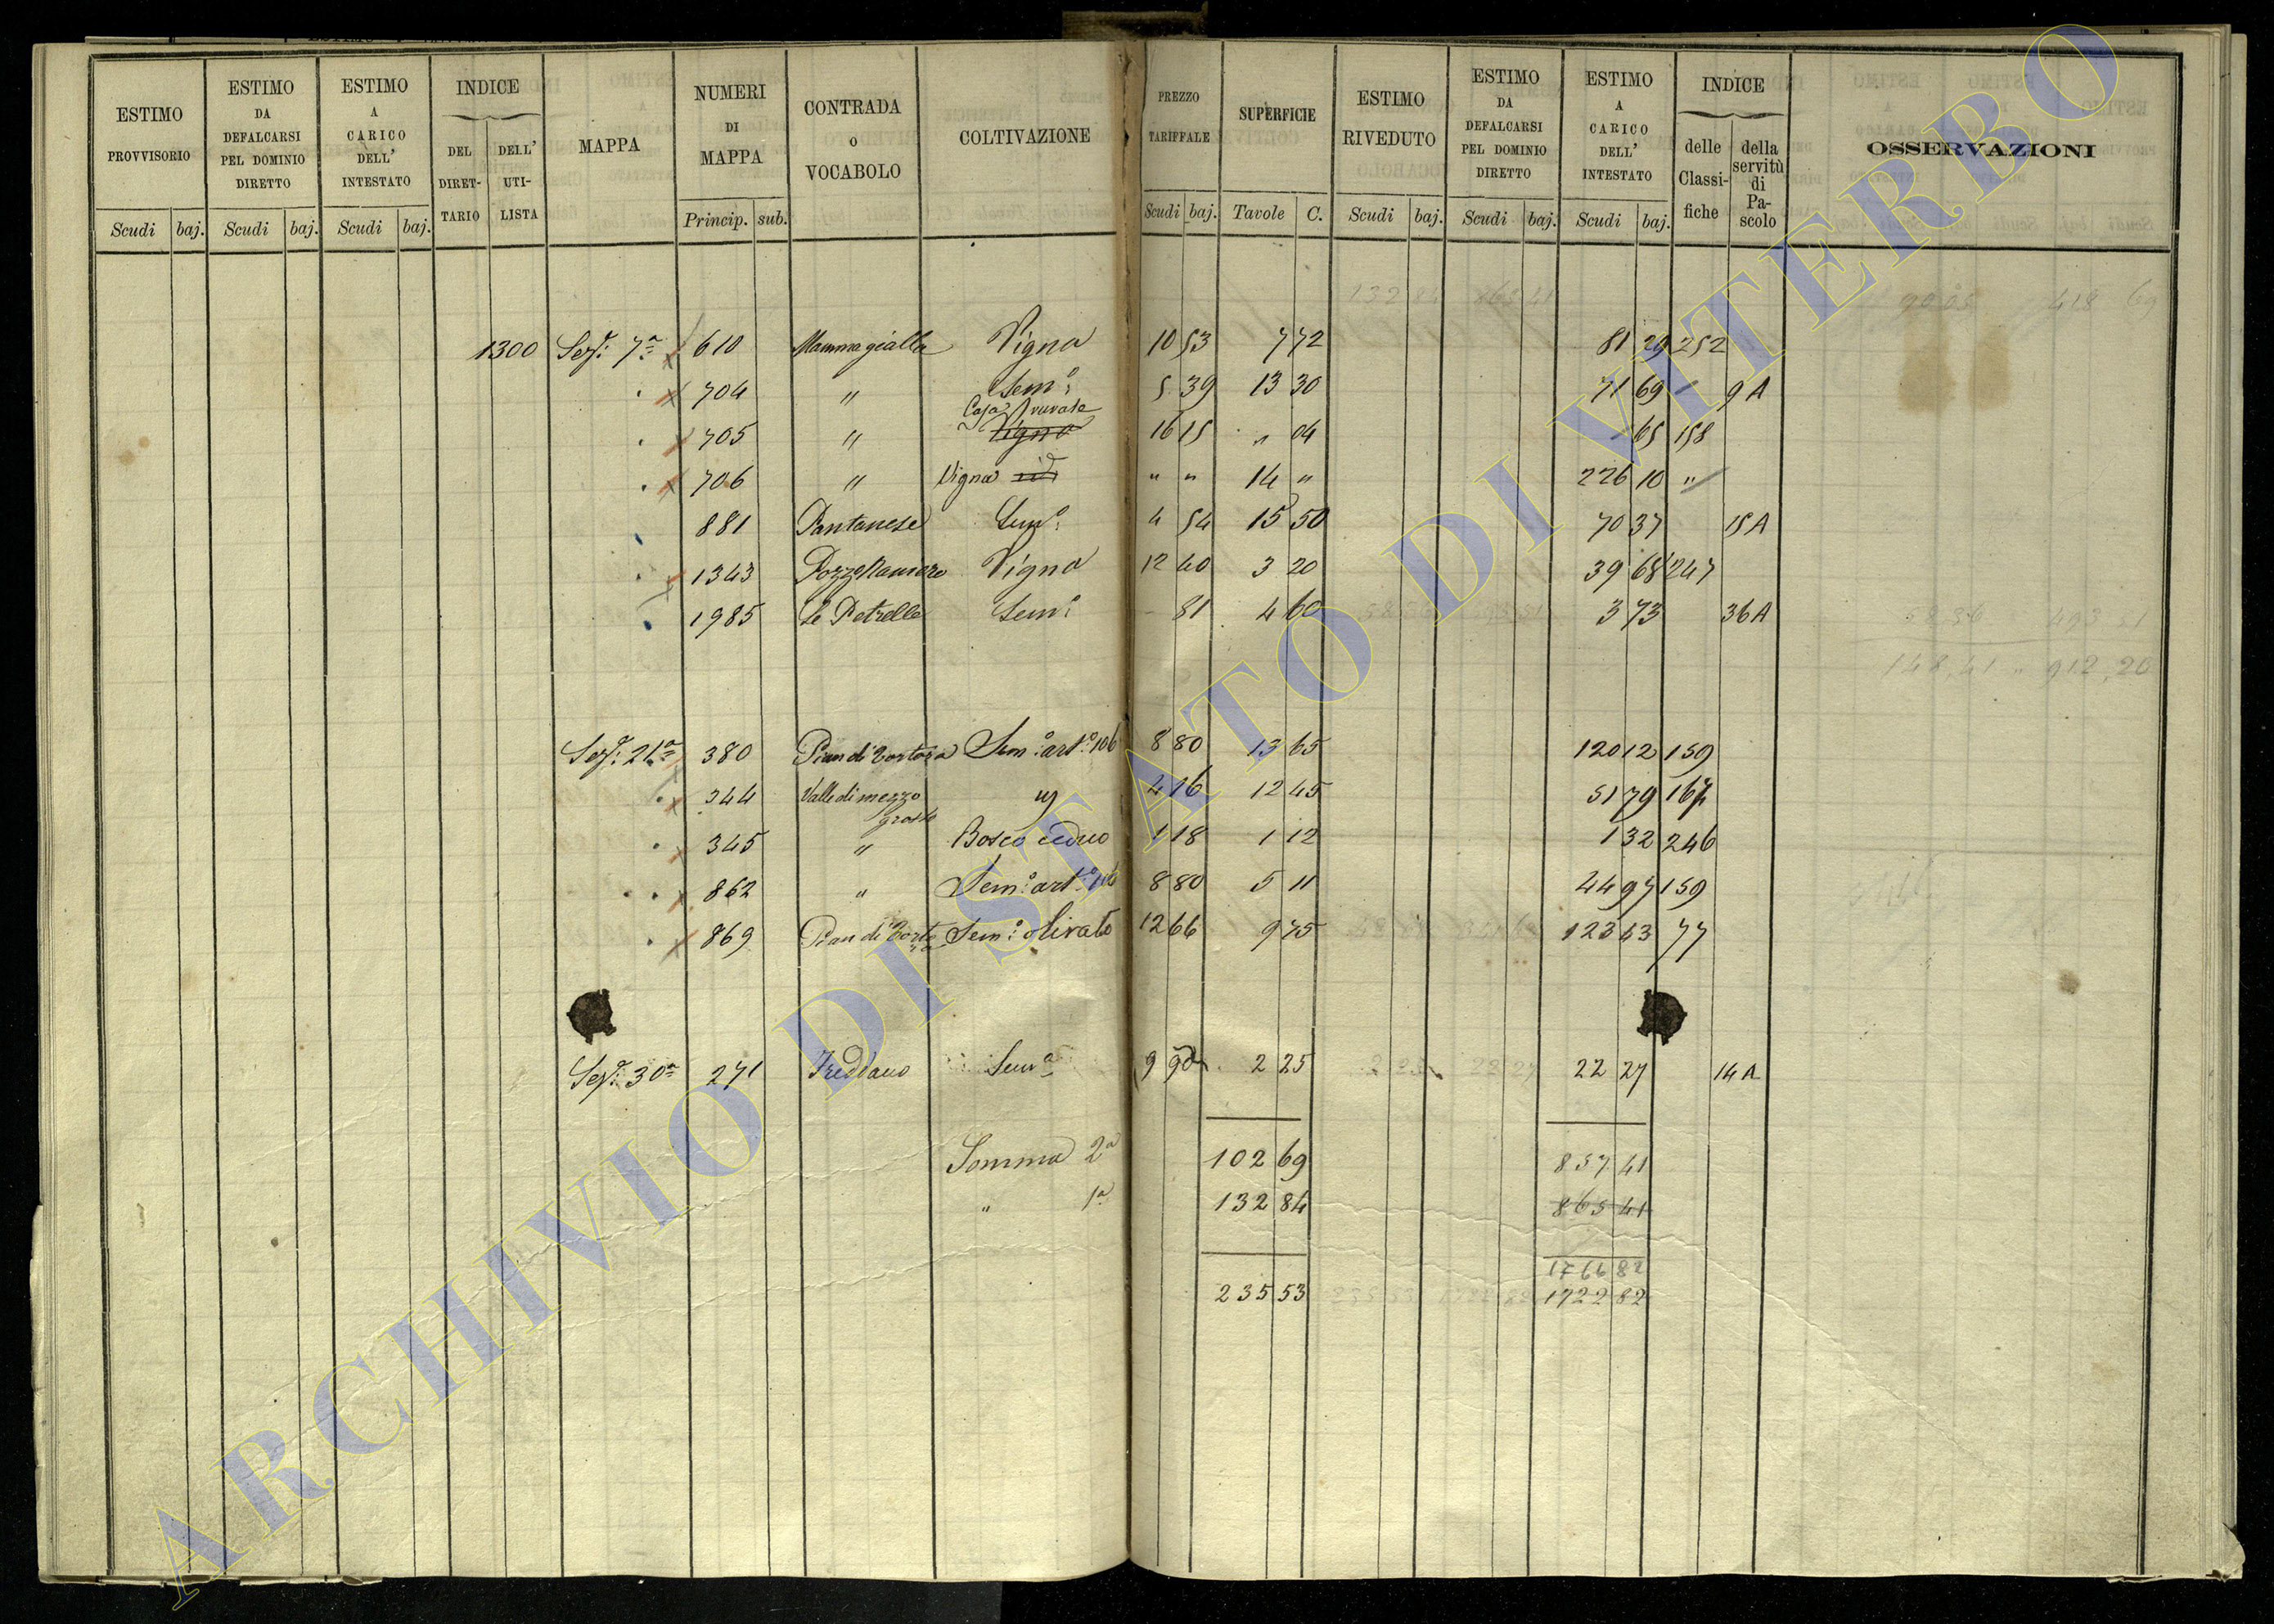 ESTIMO PROVVISORIO Scudi baj. ESTIMO DA DEFALCARSI PEL DOMINIO DIRETTO Scudi baj. ESTIMO A CARICO DELL' INTESTATO Scudi baj. INDICE DEL DIRETTARIO DELL' UTILISTA MAPPA NUMERI DI MAPPA Princip. sub. CONTRADA O VOCABOLO COLTIVAZIONE PREZZO TARIFFALE Scudi baj. SUPERFICIE Tavole C. ESTIMO RIVEDUTO Scudi baj. ESTIMO DA DEFALCARSI PEL DOMINIO DIRETTO Scudi baj. ESTIMO A CARICO DELL' INTESTATO Scudi baj. INDICE delle Classifiche della servitù di Pascolo OSSERVAZIONI
132 84 865 41 90 05 418 69
1300 Sez.e 7a 610 Mammagialla Vigna 10 53 7 72 81 29 252
704 " Sem.o 5 39 13 30 71 69 9 A
705 " Casa rurale Vigna 16 15 " 04 65 158
706 " Vigna id " " 14 " 226 10 "
881 Pantanese Sem.o 4 54 15 50 70 37 15 A
1343 Vigna 12 40 3 20 39 68 247
1985 Le Petrelle Sem.o 81 4 60 3 73 36 A
148,41 " 912,20
Sez.e 21a 380 Pian di Tortora Sem.o art.o 106 8 80 13 65 120 12 159
344 Valle di mezzo grosso 4 16 12 45 51 79 167
345 " Bosco ceduo 1 18 1 12 1 32 246
862 " Sem.o art.o 106 8 80 5 11 44 97 159
869 Pian di Tortora Sem.o olivato 12 66 9 75 123 43 77
Sez.e 30a 271 Freddano Sem.o 9 90 2 25 2 25 22 27 22 27 14 A
Somma 2a 102 69 857 41
" 1a 132 84 865 41
235 53 1722 82
ARCHIVIO DI STATO DI VITERBO